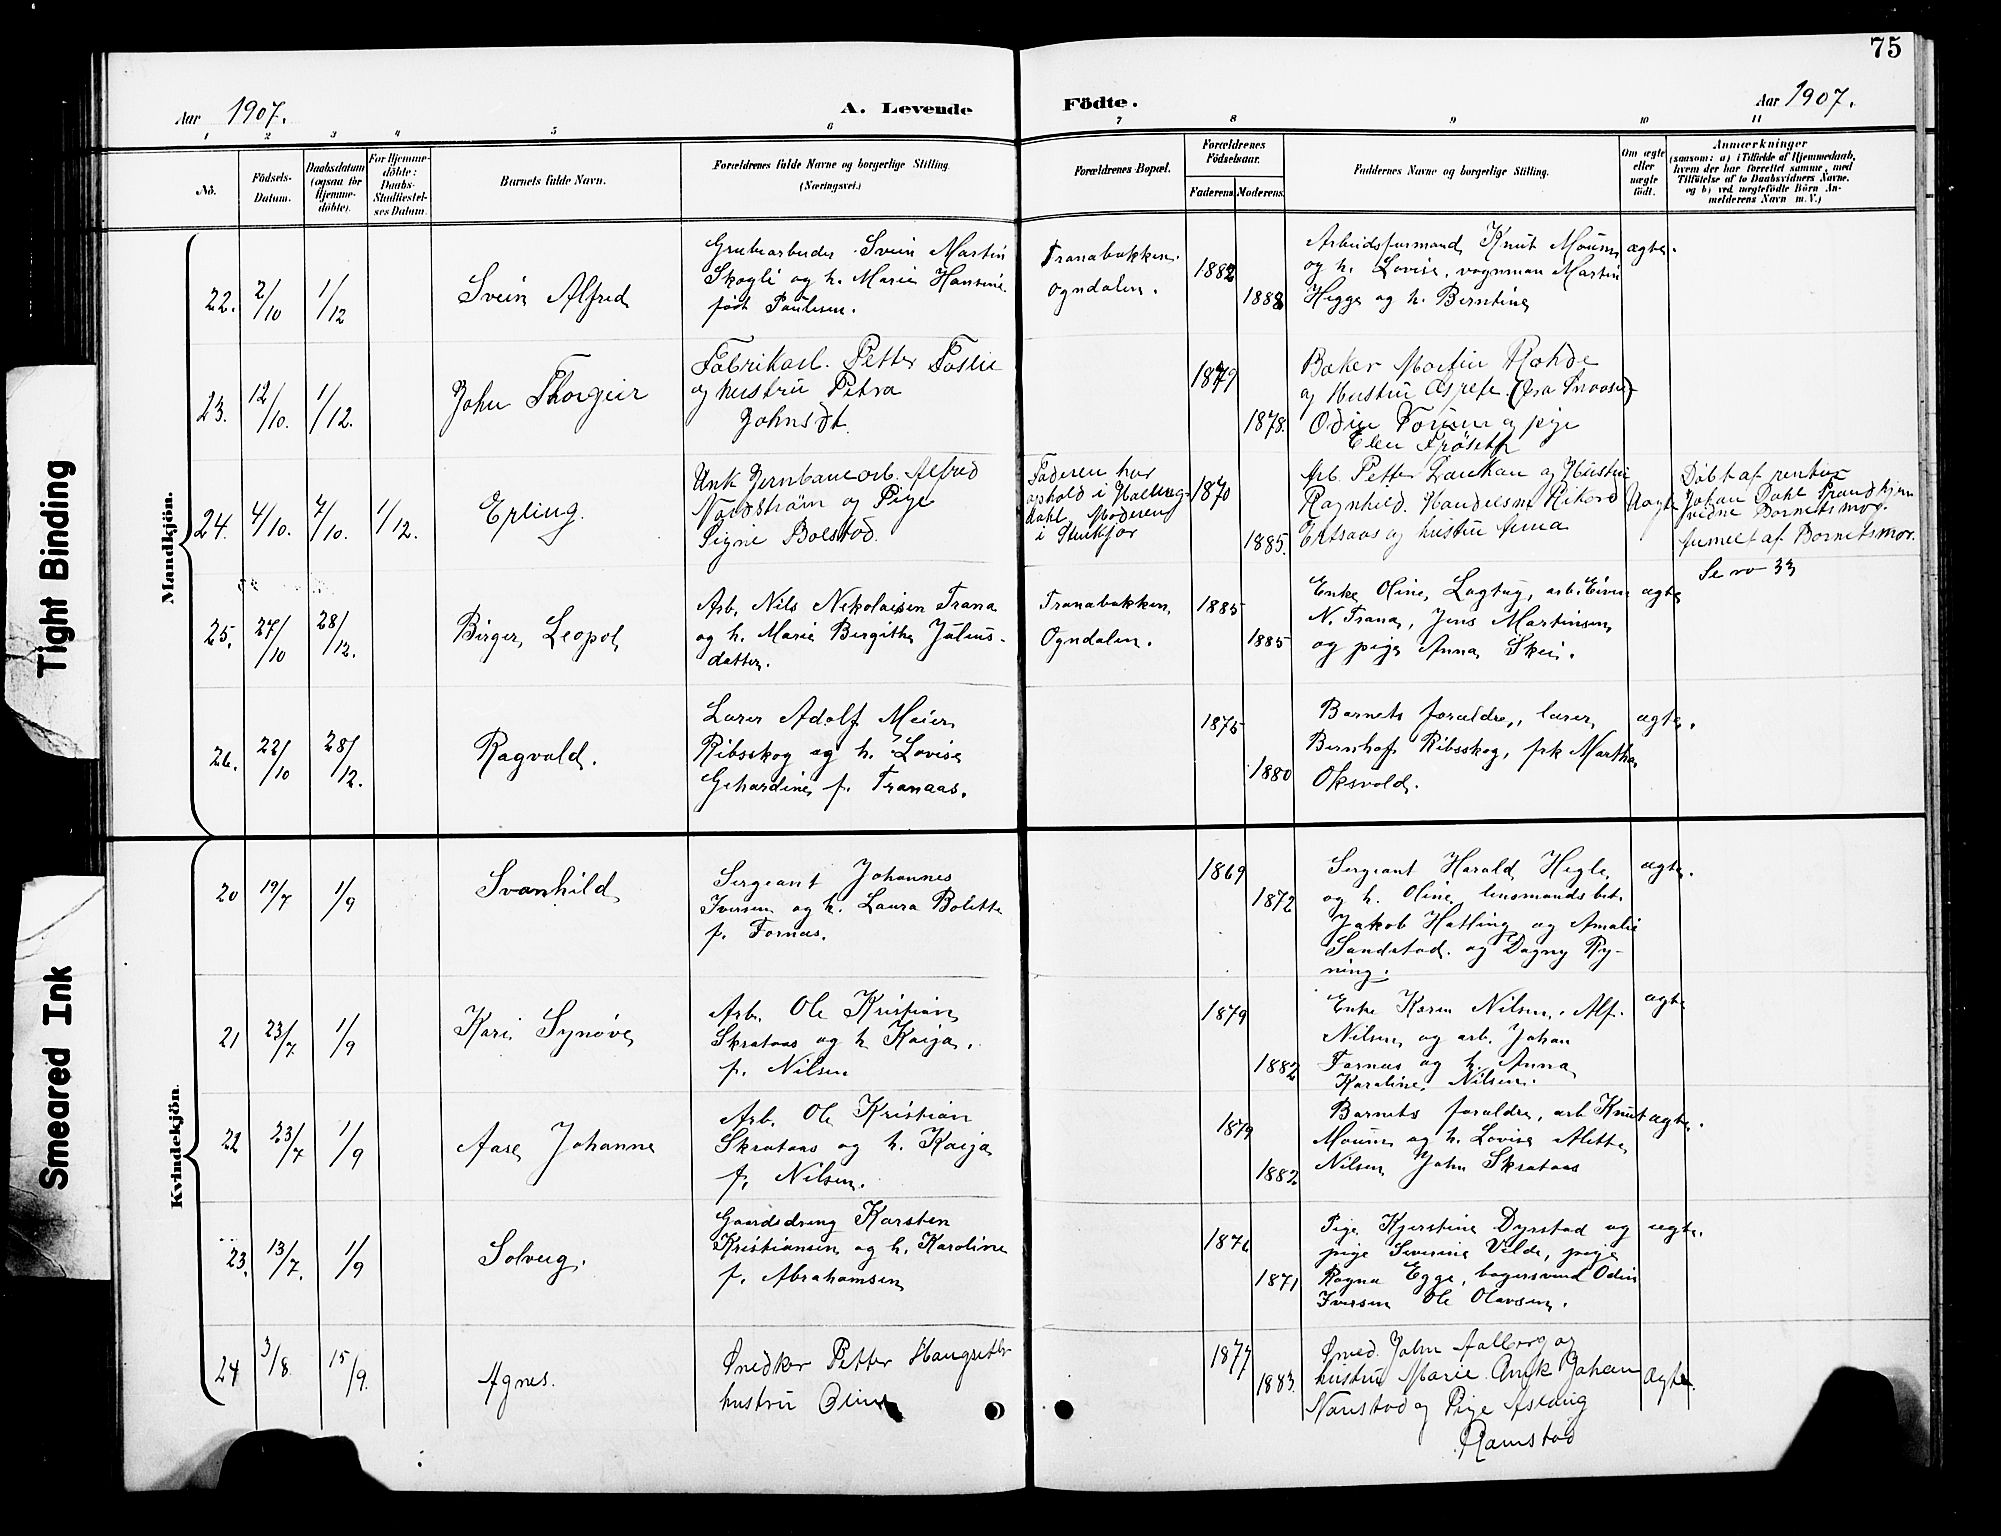 75
Aar 1907.
A. Levende
Födte.
Aar 1907.
1 2 3 4 5 6 7 8 9 10 11
No.
Födsels-
Datum.
Daabsdatum
(ogsaa for
Hjemme-
döbte).
For Hjemme-
döbte:
Daabs-
Stadfæstel-
ses Datum.
Barnets fulde Navn.
Forældrenes fulde Navne og borgerlige Stilling.
(Næringsvei.)
Forældrenes Bopæl.
Forældrenes
Födselsaar.
Faderens Moderens
Faddernes Navne og borgerlige Stilling.
Om ægte
eller
uægte
födt.
Anmærkninger
(saasom: a) i Tilfælde af Hjemmedaab,
hvem der har forrettet samme, med
Tilföielse af to Daabsvidners Navne,
og b) ved uægtefödte Börn An-
melderens Navn m. V.)
Mandkjön.
22. 2/10 1/12
Svein Alfred
Grubearbeider Svein Martin
Skogli og h. Marie Hansine
født Paulsen.
Tranabakken
Ogndalen.
1882
1888
Arbeidsformand Knut Moum
og h. Lovise, vognman Martin
Hegge og h. Berntine
ægte.
23. 12/10. 1/12.
John Thorgeir
Fabrikarb. Petter Foslie
og hustru Petra
Johnsdt.
1879
1878.
Baker Martin Rohde
og Hustru (fra Snaasen)
Odin og pige
Elen Frøseth
24. 4/10. 7/10. 1/12.
Erling.
Unk Jernbanearb. Alfred
Nordstrøm og Pige
Signe Bolstad.
Faderen har
ophold i Halling-
dahl, Moderen
i Stenkjær
1870
1885.
Arb. Petter og Hustru
Ragnhild. Handelsm. Rikard
og hustru Anna
Uægte
Døbt af
Johan Dahl
Barnetsmor.
Anmelt af Barnetsmor.
Se no 33
25. 27/10 28/12.
Birger Leopol
Arb. Nils Nikolaisen Trana
og h. Marie Birgithe Julius-
datter.
Tranabakken
Ogndalen.
1885
1885
Enke Oline Lagtug, arb. Eivin
N. Trana, Jens Martinsen
og pige Anna Skei.
ægte
26. 22/10 28/12.
Ragvald.
Lærer Adolf Meier
Ribsskog og h. Lovise
Gehardine f. Tranaas.
1875
1880
Barnets forældre, lærer
Bernhoff Ribsskog, frk Martha
Oksvold.
ægte.
Kvindekjön.
20 19/7 1/9
Svanhild
Sergeant Johannes
Iversen og h. Laura Bolette
f. Fornes.
1869
1872
Sergeant Harald Hegle
og h. Oline, lensmandsbet.
Jakob Hatling og Amalie
Sandstad og Dagny Ry-
ning.
ægte.
21 23/7 1/9
Kari Synøve
Arb. Ole Kristian
Skrataas og h Kaija.
f. Nilsen
1879
1882
Enke Karen Nilsen, Alf.
Nilsen og arb. Johan
Fornes og h. Anna
Karoline Nilsen.
ægte
22 23/7 1/9
Aase Johanne
Arb. Ole Kristian
Skrataas og h. Kaija
f. Nilsen.
1879
1882
Barnets forældre, arb Knut
Moum og h. Lovise Alette
Nilsen John Skrataas
ægte.
23. 13/7. 1/9
Solveig.
Gaardsdreng Karsten
Kristiansen og h. Karoline
f. Abrahamsen
1876
1871
Pige Kjerstine Dyrstad og
pige Severine Vilde, pige
Ragna Egge, bagersvend Odin
Iversen Ole Olavsen.
ægte.
24 3/8. 15/9.
Agnes.
Snedker Petter
hustru Oline
1877
1883.
Smed. John Aalberg og
hustru Marie. Johan
og Pige Aslaug
Ramstad
ægte.
Tight Binding
Smeared Ink